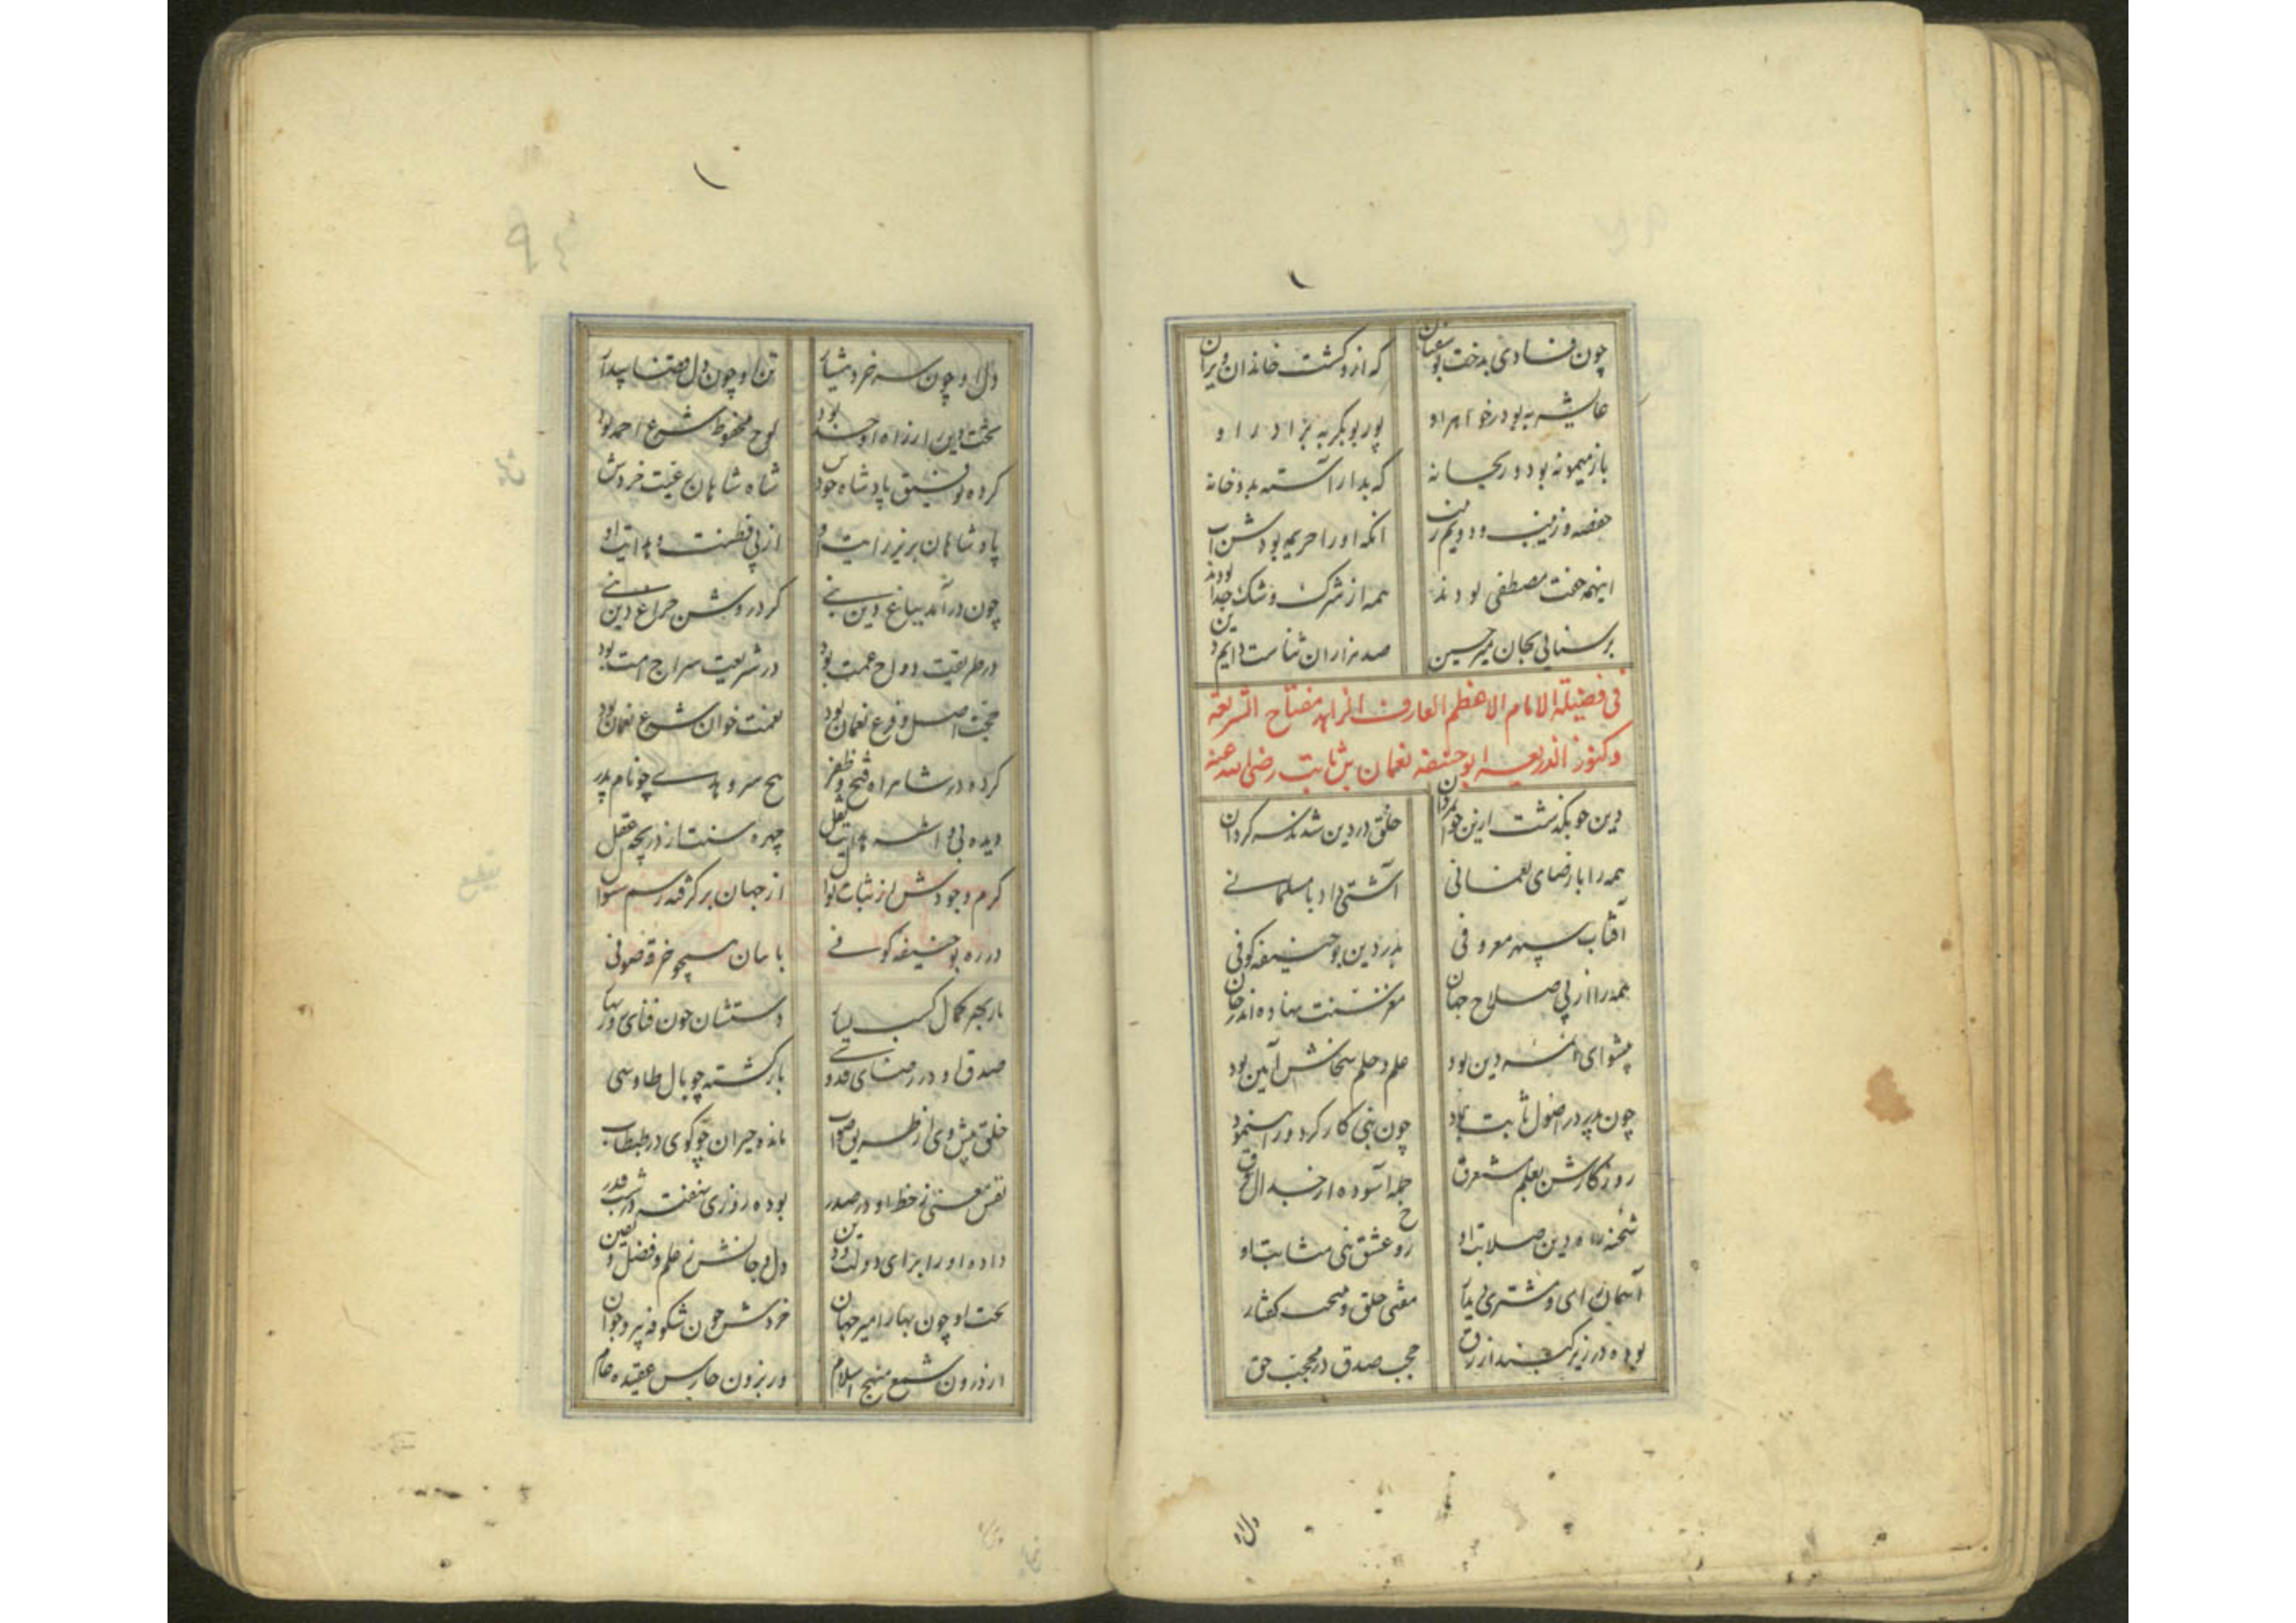 چون فسادی بدخت بوسفیان که ازو گشت خاندان ویران
عایشه به بود خواهر او پور بوبکر به برادر او
باز میمونه بود و ریحانه که بدار آسته بدو خانه
حفصه و زینب و دویم زینب انکه او را حریمه بودش اب
اینهمه جفت مصطفی بودند همه از شرک و شک جدا بودند
بر سنائی بجان میر حسین صد هزاران ثناست دایم دین
فی فضیلة الامام الاعظم العارف الزاهد مفتاح الشریعه
و کنوز الذریعه ابو حنیفه نعمان بن ثابت رضی الله عنه
دین چو بگذشت ازین جوانمردان خلق در دین شدند سرگردان
همه را با رضای نعمانی آشتی داد با مسلمانی
آفتاب سپهر معروفی بدر دین بو حنیفه کوفی
همه را از پی صلاح جهان مغز سنت نهاده اندر جان
پیشوای ائمه دین بود علم و حلم سخاش آیین بود
چون پدر در اصول ثابت بود چون بنی کار کرد و راه نمود
روزگارش بعلم مستغرق جمله آسوده از جدال فرق
شحنه راه دین صلابت او رو عشق بنی مثابت او
آسمان رای و مشتری دیدار مفتی خلق و صحت گفتار
بوده در زیر گنبد ازرق حجب صدق در محبت حق
دل او
دل او چون سر خرد بیدار تن او چون دل قضا بیدار
تخت دین را ز راه او جند بود لوح محفوظ شرع احمد بود
کرده توفیق پادشاه خودش شاه شاهان غیب خردش
پادشاهان بزیر رایت او از پی فطنت و هدایت او
چون درآمد بباغ دین بنی کرد روشن چراغ دین
در طریقت دواج عمت بود در شریعت سراج امت بود
حجت اصل و فرع نعمان بود نعمت خوان شرع نعمان بود
کرده در شاهراه فتح و ظفر پدر
دیده بی واسطه هدایت عقل چهره سنت از دریچه عقل
کرم و جودش از ثبات نوال از جهان برگرفته رسم سوال
در ره بو حنیفه کوفی با سان همچو خرقه صوفی
باز بهر کمال کسب
صدق او در رضای قدوسی باز گشته چو بال طاوسی
خلق پیش وی از طریق صواب مانده حیران چو گوی در طبطاب
نفس معنی ز حفظ او در صدر بوده روزی نهفته در شب قدر
داده او را برای دولت و دین دل و جانش ز علم و فضل و یقین
تخت او چون بهار امیر جهان خردش چون شکوفه پیر و جوان
از درون شمع منهج اسلام وز برون حارس عقیده عام